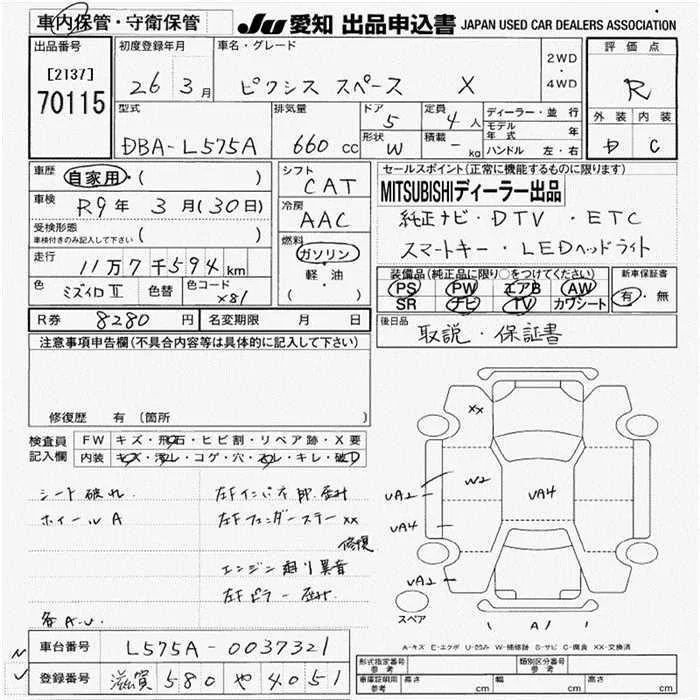 車内保管・守衛保管
JU 愛知 出品申込書 JAPAN USED CAR DEALERS ASSOCIATION
出品番号
[2137]
70115
初度登録年月
26 3月
車名・グレード
ピクシス スペース X
2WD
・
4WD
評価点
R
外装 内装
D C
型式
DBA-L575A
排気量
660 cc
ドア
5
形状
W
定員
4人
積載
- kg
ディーラー・並行
モデル年式 年
ハンドル 左・右
車歴
自家用・( )
車検
R9年 3月(30日)
受検形態
車検付きのみ記入して下さい ( )
走行
11万7千594km
色
ミズイロII
色替
色コード
X81
シフト
CAT
冷房
AAC
燃料
ガソリン
軽・油
( ・ )
セールスポイント(正常に機能するものに限ります)
MITSUBISHIディーラー出品
純正ナビ・DTV・ETC
スマートキー・LEDヘッドライト
装備品(純正品に限り○をつけてください)
PS PW エアB AW
SR ナビ TV カワシート
新車保証書
有・無
後日品
取説・保証書
R券 8280円
名変期限 月 日
注意事項申告欄(不具合内容等は具体的に記入して下さい)
修復歴 有(箇所
検査員
記入欄
FW キズ・飛石・ヒビ割・リペア跡・X要
内装 キズ・汚レ・コゲ・穴・スレ・キレ・破D
シート破れ
ホイールA
各A.U.
左Fインパネ部
左Fフェンダーステーxx
修復
エンジン廻り異音
左Fピラー
XX
W2
UA2
UA4
UA4
UA2
A1
スペア
A-キズ E-エクボ U-凹み W-補修跡 S-サビ C-腐食 XX-交換済
車台番号 L575A-0037321
登録番号 滋賀 580 や 4051
形式指定番号
参考
類別区分番号
参考
車庫証明用
参考
長さ cm
幅 cm
高さ cm